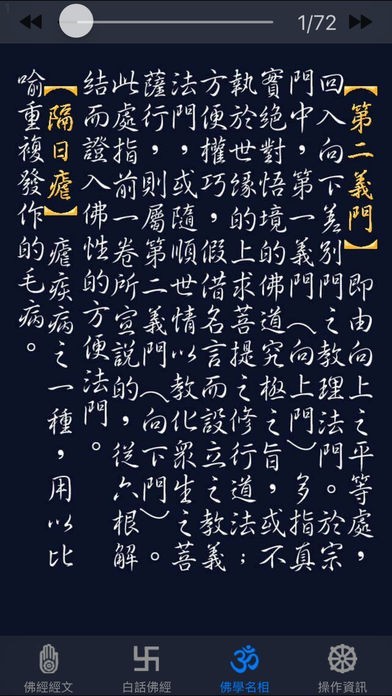 1/72
【第二義門】 即由向上之平等處，
回入向下差別門之教理法門。於宗
門中，第一義門（向上門）多指真
實絕對悟境的佛道究極之旨，或不
執於世緣的上求菩提之修行道法；
方便權巧，假借名言而設立之教義
法門，或隨順世情以教化眾生之菩
薩行，則屬第二義門（向下門）。
此處指前一卷所宣說的，從六根解
結而證入佛性的方便法門。
【隔日瘧】 瘧疾病之一種，用以比
喻重複發作的毛病。
佛經經文
白話佛經
佛學名相
操作資訊